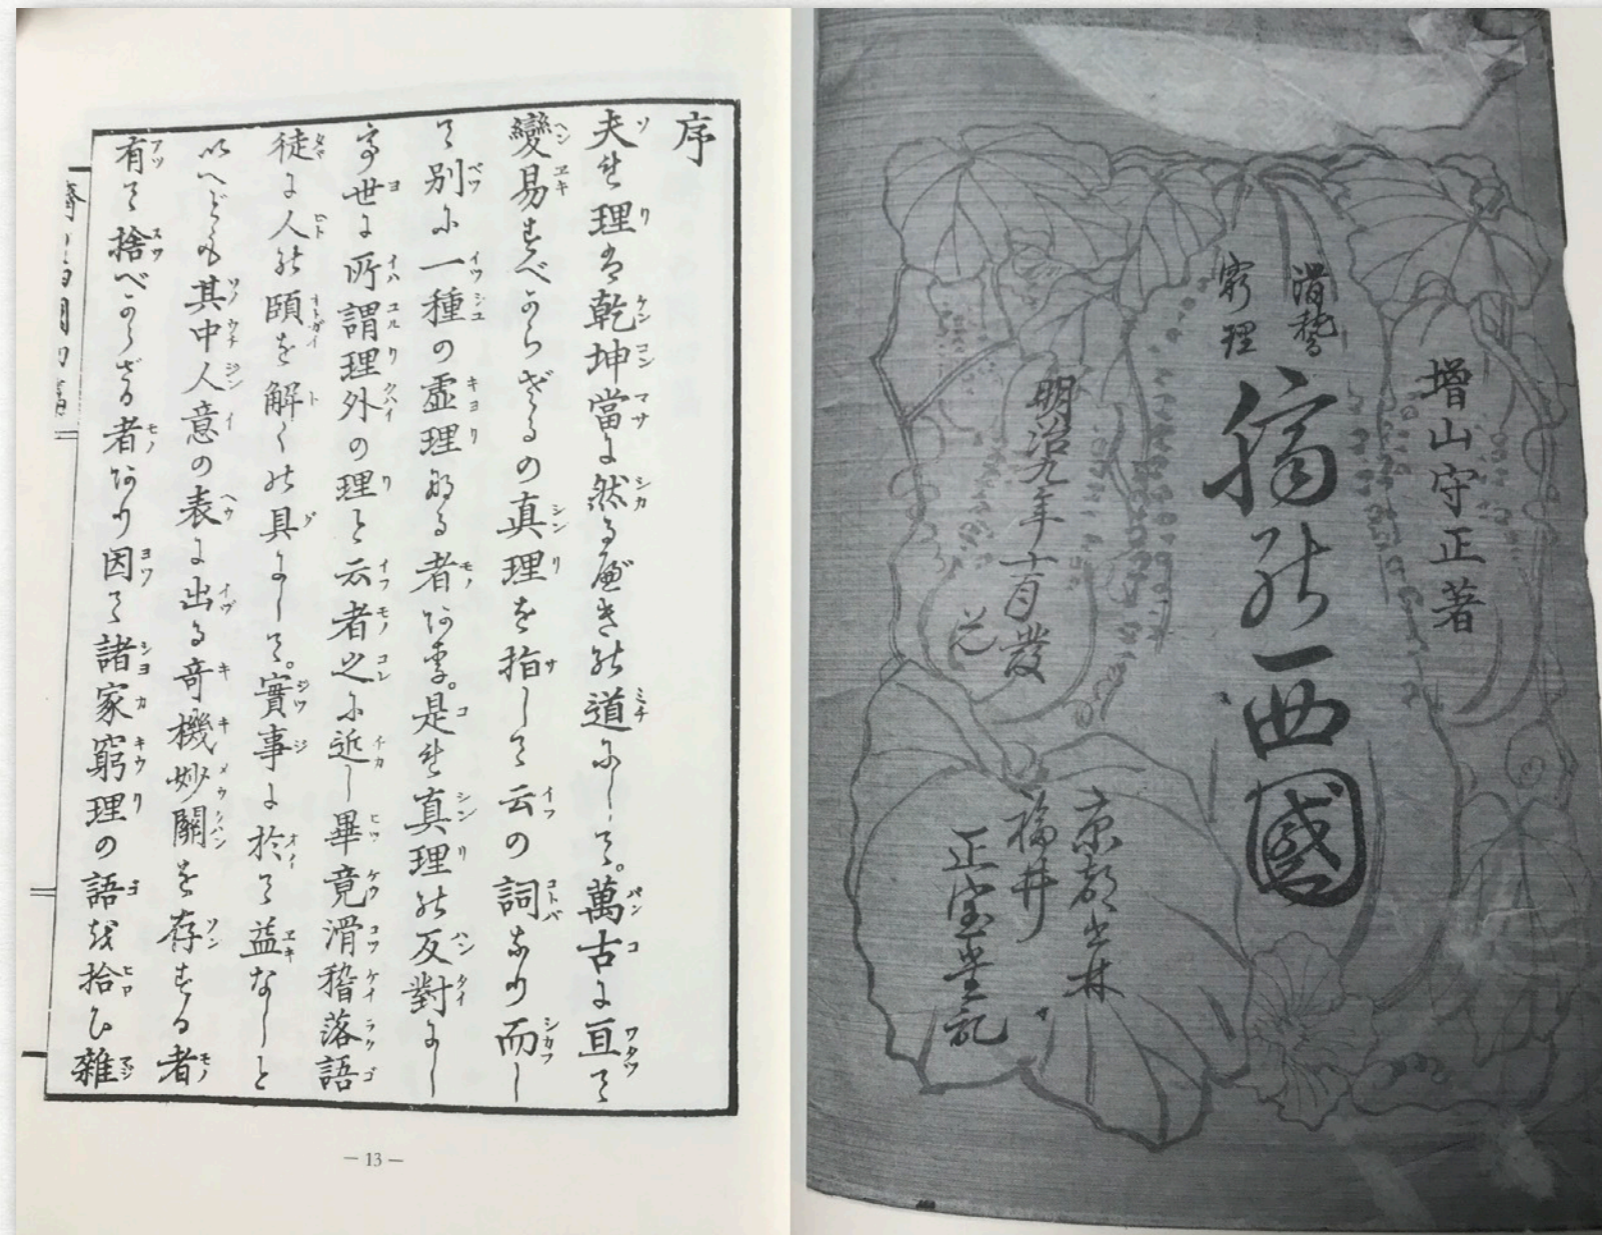 増山守正著
滑稽
窮理
臍の西國
明治九年十一月發
兌
京都書林
福井
正宝堂記
序
夫れ理は乾坤當に然るべきの道にして。萬古に亘て
變易すべからざるの真理を指して云の詞なり而し
て別に一種の虚理なる者あり。是れ真理の反對にし
て世に所謂理外の理と云者之に近し畢竟滑稽落語
徒に人の頤を解くの具にして。實事に於て益なしと
いへども其中人意の表に出る竒機妙關を存する者
有て捨べからざる者なり因て諸家窮理の語を拾ひ雜
— 13 —